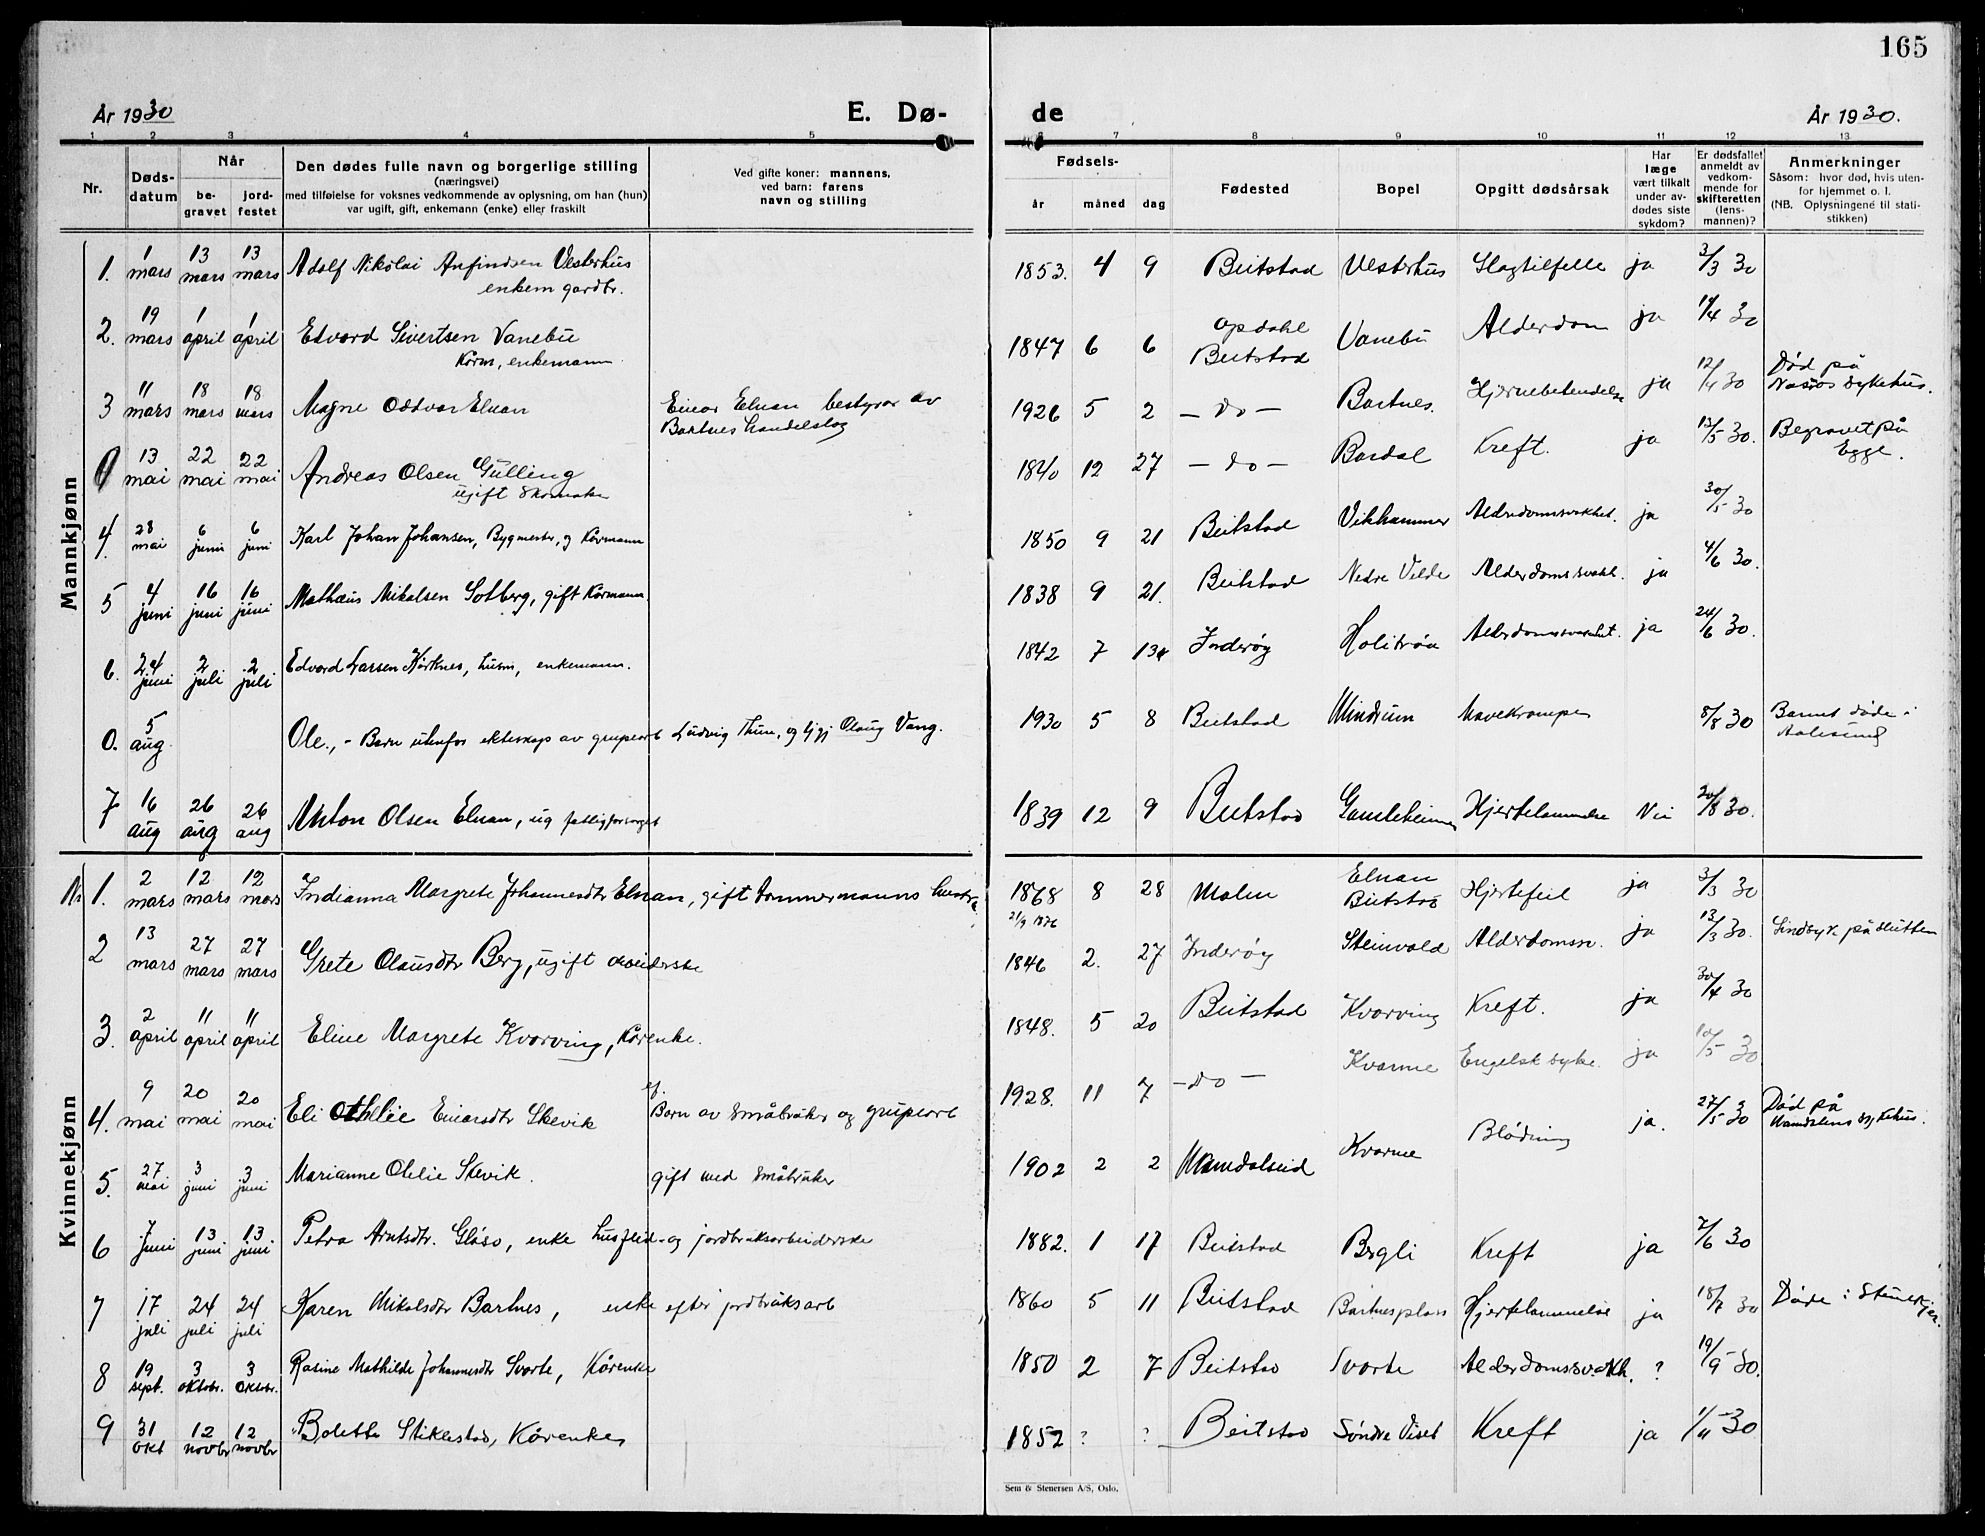 165
År 1930
E. Dø-
de
År 1930.
1 2 3 4 5 6 7 8 9 10 11 12 13
Nr.
Døds-
datum
Når
be-
gravet
jord-
festet
Den dødes fulle navn og borgerlige stilling
(næringsvei)
med tilføielse for voksnes vedkommende av oplysning, om han (hun)
var ugift, gift, enkemann (enke) eller fraskilt
Ved gifte koner: mannens,
ved barn: farens
navn og stilling
Fødsels-
år måned dag
Fødested
Bopel
Opgitt dødsårsak
Har
læge
vært tilkalt
under av-
dødes siste
sykdom?
Er dødsfallet
anmeldt av
vedkom-
mende for
skifteretten
(lens-
mannen)?
Anmerkninger
Såsom: hvor død, hvis uten-
for hjemmet o. l.
(NB. Oplysningene til stati-
stikken)
Mannkjønn
1. 1 mars 13 mars 13 mars Adolf Nikolai Anfindsen Vesterhus 1853. 4 9 Beitstad Vesterhus Slagtilfelle ja 3/3 30
enkem gardbr.
2. 19 mars 1 april 1 april Edvard Sivertsen Vanebu 1847 6 6 Opdahl Beitstad Vanebu Alderdom ja 30
Kårm, enkemann
3 11 mars 18 mars 18 mars Magne Oddvar Elnan Einar Elnan bestyrer av 1926 5 2 - do - Bartnes. Hjernebetendelse ja 12/4 30 Død på
Bartnes handelslag Namsos sykehus.
0 13 mai 22 mai 22 mai Andreas Olsen Gulling 1840 12 27 - do - Bardal Kreft. ja 13/5 30. Begravet på
ugift skomaker Egge.
4. 28 mai 6 juni 6 juni Karl Johan Johansen, Bygmester, g Kårmann 1850 9 21 Beitstad Vikhammer ja 30/5 30
5 4 juni 16 juni 16 juni Mathæus Mikalsen Solberg, gift Kårmann. 1838 9 21. Beitstad Nedre Velde Alderdomssvakh. ja 4/6 30.
6. 24 juni 2 juli 2 juli Edvard Larsen Kjørknes, husm, enkemann. 1842 7 13 Inderøy ja 24/6 30.
0. 5 aug. Ole., - Barn utenfor ekteskap av grupearb Ludvig Thun, og Olaug Vang. 1930 5 8 Beitstad Mindrum Mavekramper 8/8 30 Barnet døde i
Aalesund
7 16 aug 26 aug 26 aug Anton Olsen Elnan, ug fattigforsørget 1839 12 9 Beitstad Gamleheimen Hjertelammelse Nei 20/8 30.
Kvinnekjønn
Nr 1. 2 mars 12 mars 12 mars Indianna Margrete Johannesdtr Elnan, gift tømmermanns hustru 1868 8 28 Malm Elnan Beitstad Hjertefeil ja 3/3 30
21/9 1876
2 13 mars 27 mars 27 mars Grete Olausdtr Berg, ugift arbeiderske 1846 2. 27 Inderøy Steinvald Alderdomssv. ja 13/3 30. Sindsyk på slutten
3. 2 april 11 april 11 april Eline Margrete Kvarving, Kårenke. 1848. 5 20 Beitstad Kvarving Kreft. ja 30/4 30
4. 9 mai 20 mai 20 mai Eli Othelie Einarsdtr Skevik Barn av småbruker og grupearb 1928. 11 7 - do - Kvarme Engelsk syke. ja 10/5 30
5. 27 mai 3 juni 3 juni Marianne Otelie Skevik. gift med småbruker 1902 2 2 Namdalseid Kvarme Blødning ja. 27/5 30 Død på
Namdalens sykehus.
6 7 juni 13 juni 13 juni Petra Arntsdtr. Gløso, enke husflid- og jordbruksarbeiderske 1882. 1 17 Beitstad Bergli Kreft ja 7/6 30
7 17 juli 24 juli 24 juli Karen Mikalsdtr Bartnes, enke efter jordbruksarb 1860 5 11 Beitstad Bartnesplass Hjertelammelse ja 18/7 30 Døde i Steinkjer.
8 19 sept. 3 oktobr. 3 oktbr. Rasine Mathilde Johannesdtr Svarte, Kårenke 1850 2 7 Beitstad Svarte Alderdomssvakh. ? 19/9 30.
9 31 okt 12 novbr 12 novbr Bolette Stiklestad, Kårenke, 1852 ? ? Beitstad Søndre Viset Kreft ja 1/11 30
Sem & Stenersen A/S, Oslo.